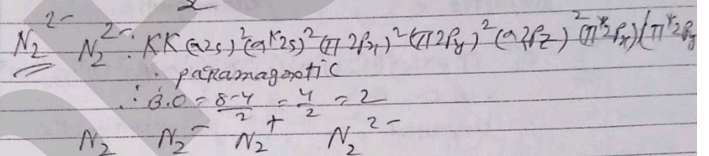 N₂²⁻ N₂²⁻: KK (σ2s)² (σ*2s)² (π2Px)² (π2Py)² (σ2Pz)² (π*2Px) (π*2Py
∴ paramagnetic
∴ B.O = 8-4/2 = 4/2 = 2
N₂ N₂⁻ N₂⁺ N₂²⁻